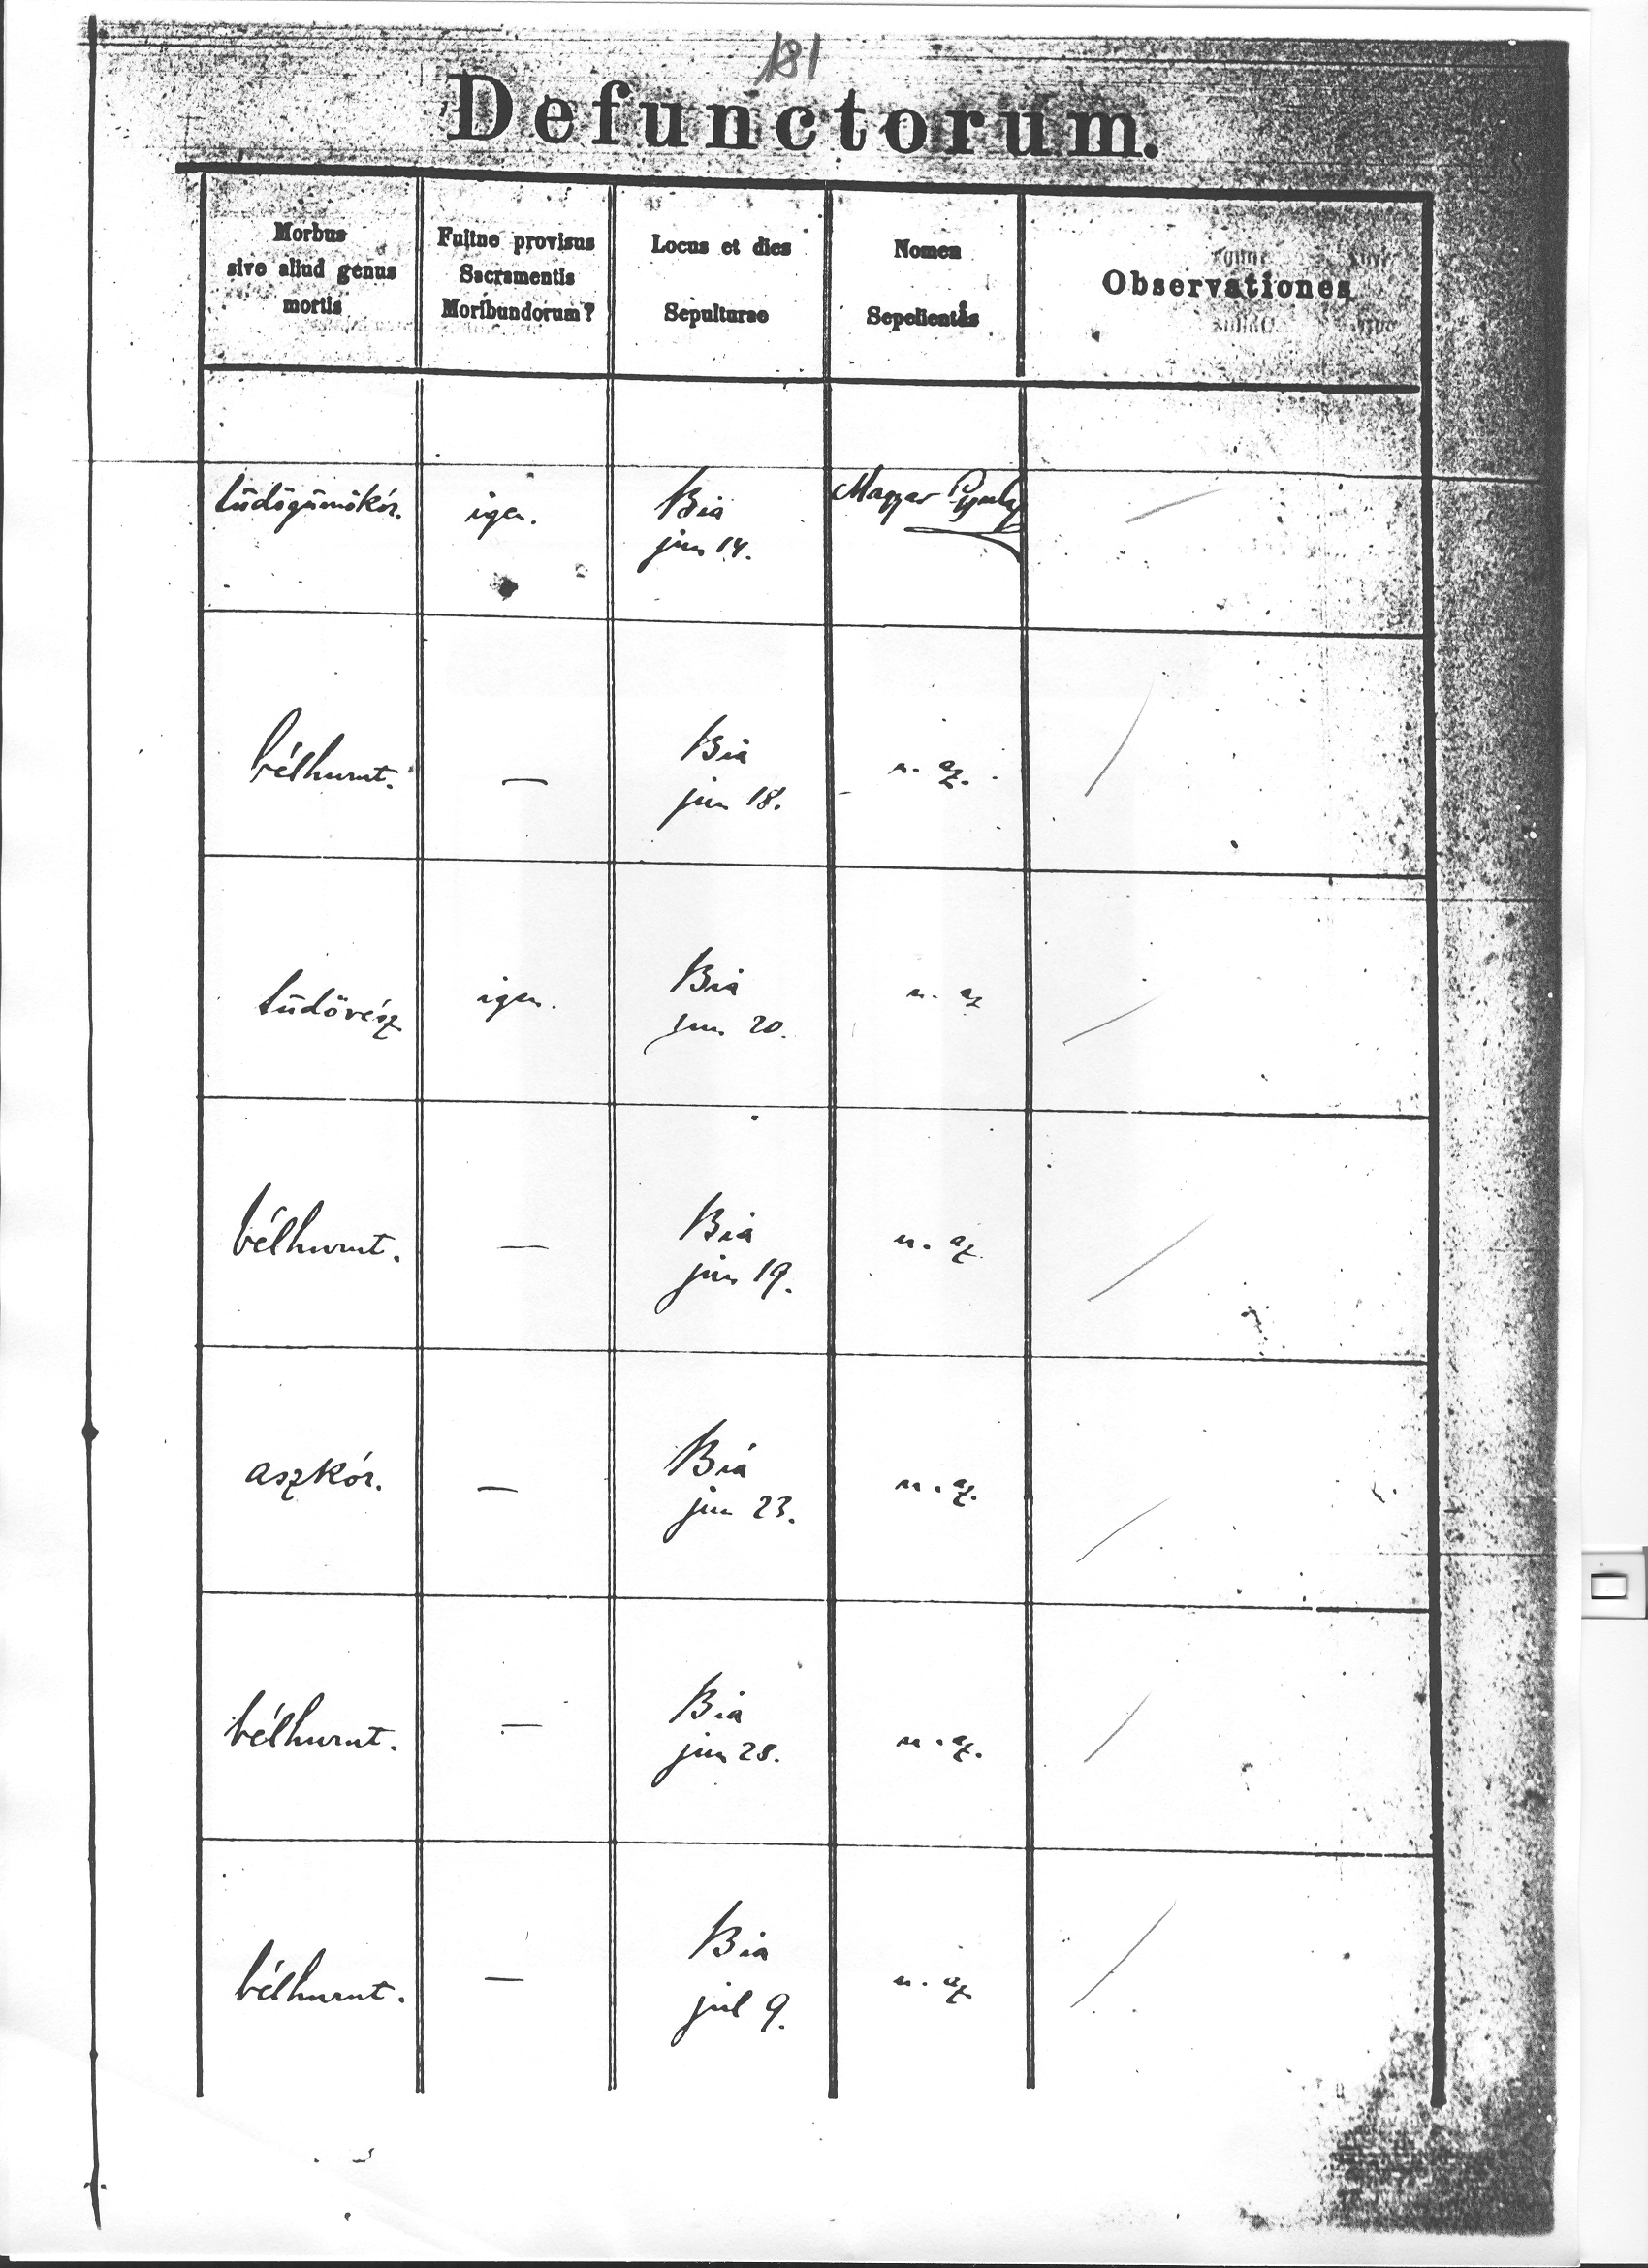 181
Defunctorum.
Morbus
sive aliud genus
mortis
Fuitne provisus
Sacramentis
Moribundorum?
Locus et dies
Sepulturae
Nomen
Sepelientis
Observationes
tüdőgümőkór.
igen.
Bia
jun 14.
Magyar Gyula
bélhurut.
—
Bia
jun 18.
u. az.
tüdővész
igen.
Bia
jun. 20.
u. az
bélhurut.
—
Bia
jun 19.
u. az
aszkór.
—
Bia
jun 23.
u. az.
bélhurut.
—
Bia
jun 28.
u. az.
bélhurut.
—
Bia
jul 9.
u. az